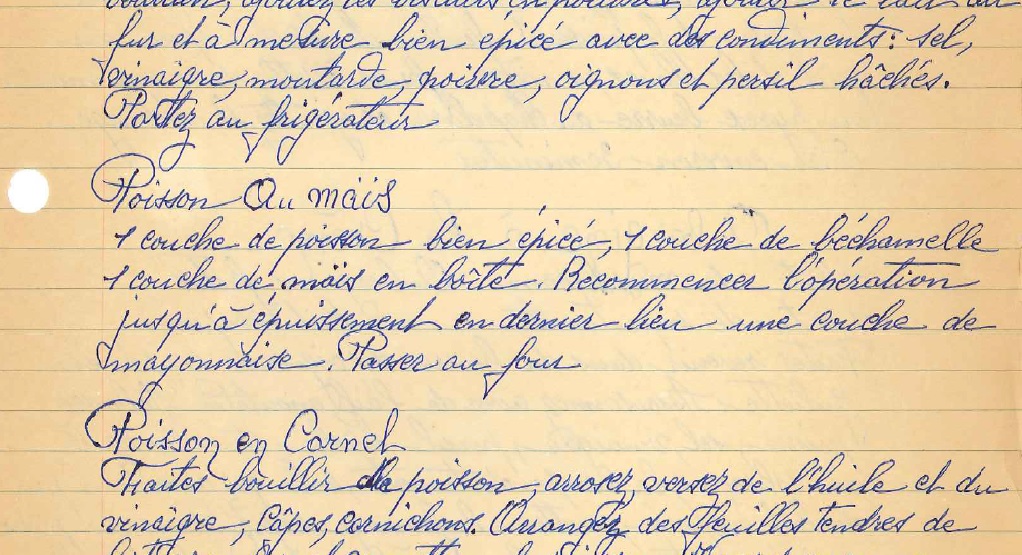 fur et à mesure bien épicé avec des condiments: sel,
vinaigre, moutarde, poivre, oignons et persil hâchés.
Portez au frigérateur
Poisson Au maïs
1 couche de poisson bien épicé, 1 couche de béchamelle
1 couche de maïs en boîte. Recommencer l'opération
jusqu'à épuissement en dernier lieu une couche de
mayonnaise. Passer au four
Poisson en Cornet
Faites bouillir le poisson, arrosez, versez de l'huile et du
vinaigre, Câpes, cornichons. Arrangez des feuilles tendres de